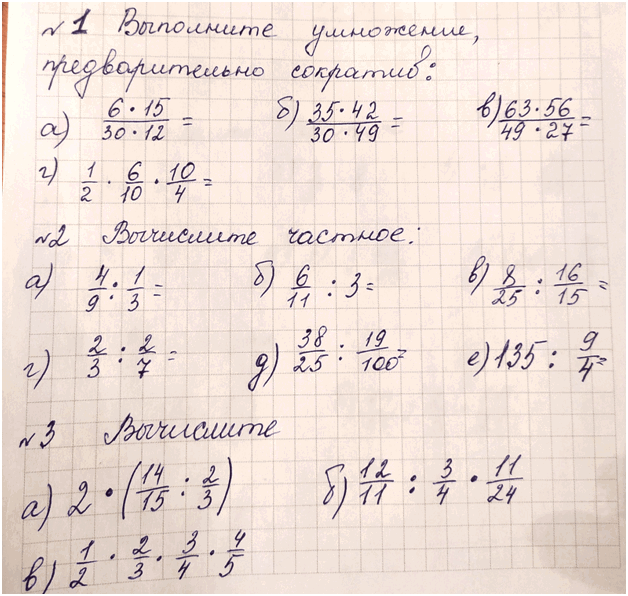 №1 Выполните умножение,
предварительно сократив:
а) (6·15)/(30·12) = б) (35·42)/(30·49) = в) (63·56)/(49·27) =
г) 1/2 · 6/10 · 10/4 =
№2 Вычислите частное:
а) 4/9 : 1/3 = б) 6/11 : 3 = в) 8/25 : 16/15 =
г) 2/3 : 2/7 = д) 38/25 : 19/100 = е) 135 : 9/4 =
№3 Вычислите
а) 2 · (14/15 : 2/3) б) 12/11 : 3/4 · 11/24
в) 1/2 · 2/3 · 3/4 · 4/5